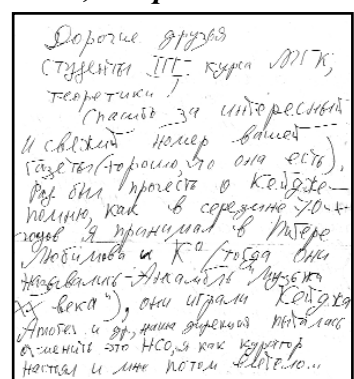 Дорогие друзья
студенты III курса МГК,
теоретики!
Спасибо за интересный
и свежий номер вашей
газеты (хорошо, что она есть).
Рад был прочесть о Кейдже –
помню, как в середине 70-х
годов я принимал в Питере
Любимова и К° (тогда они
назывались – Ансамбль "Музыка
XX века"), они играли Кейджа
и др, наша дирекция пыталась
отменить это НСО, я как куратор
настоял и мне потом влетело...